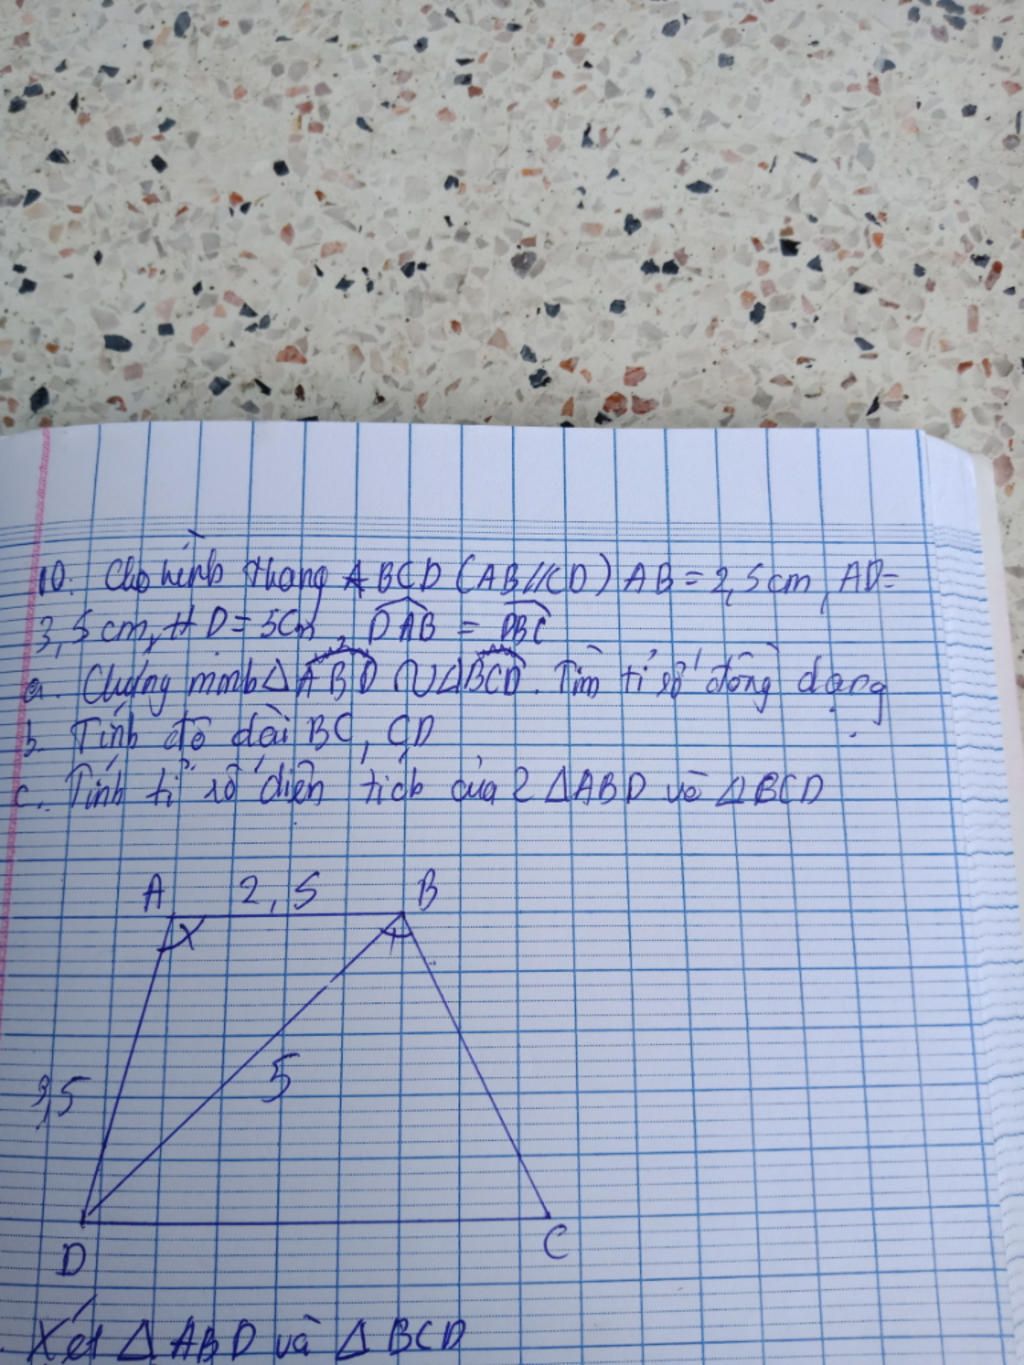 10. Cho hình thang ABCD (AB//CD) AB = 2,5cm, AD =
3,5cm, HD = 5cm, DAB = DBC
a. Chứng minh Δ ABD ∽ Δ BCD. Tìm tỉ số đồng dạng
b. Tính độ dài BC, CD
c. Tính tỉ số diện tích của 2 ΔABD và ΔBCD
A 2,5 B
3,5 5
D C
Xét Δ ABD và Δ BCD